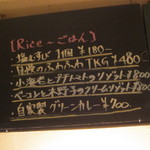 【Rice~ごはん】
・塩むすび 1個 ¥180-
ふわふわTKG ¥480-
・小海老とプチトマトのリゾット ¥800
・ベーコンと木野子のクリームリゾット ¥800
・自家製 グリーンカレー ¥900.